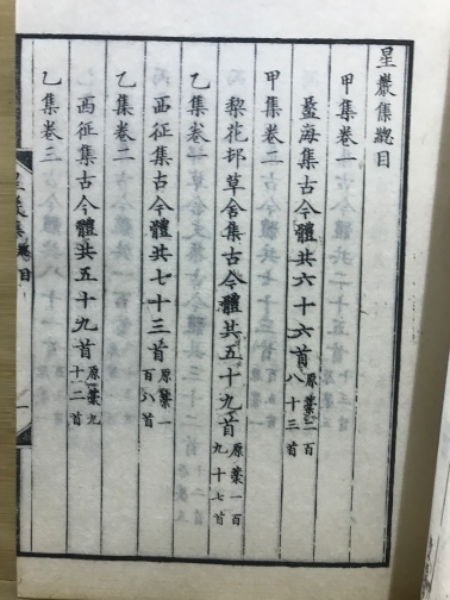 星巖集總目
甲集卷一
蠡海集古今體共六十六首
原藁二百
八十三首
甲集卷二
梨花邨草舍集古今體共五十九首
原藁一百
九十七首
乙集卷一
西征集古今體共七十三首
原藁一
百八首
乙集卷二
西征集古今體共五十九首
原藁九
十二首
乙集卷三
總目